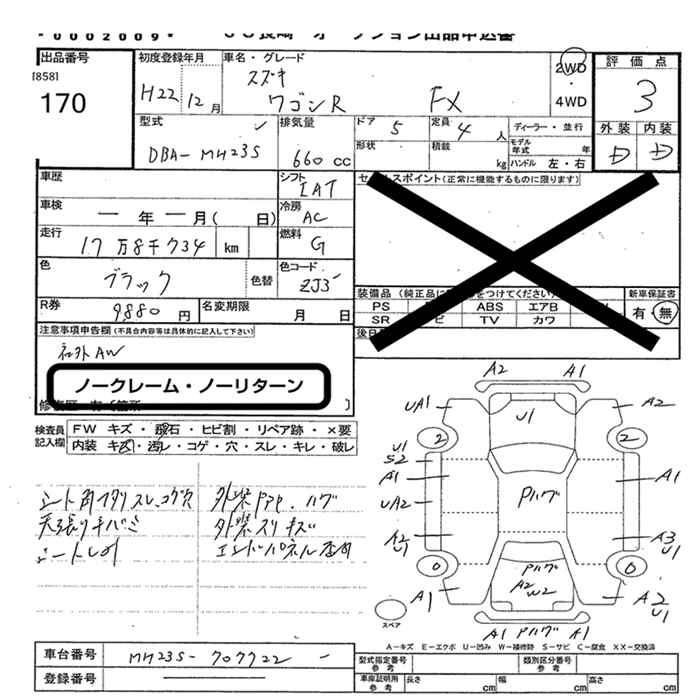 -0002009-
出品番号
[858]
170
初度登録年月
H22 12月
車名・グレード
スズキ
ワゴンR FX
2WD
・
4WD
評価点
3
外装 内装
D D
型式
DBA-MH23S
排気量
660 cc
ドア 5
定員 4 人
形状
積載 kg
ディーラー・並行
モデル年式 年
ハンドル 左・右
車歴
シフト
IAT
車検
年 月( 日)
冷房
AC
走行
17万8千734 km
燃料
G
色
ブラック
色替
色コード
ZJ3
R券
9880円
名変期限
月 日
セールスポイント(正常に機能するものに限ります)
装備品(純正品に
をつけてください)
新車保証書
有・無
PS ABS エアB
SR TV カワ
後日
注意事項申告欄(不具合内容等は具体的に記入して下さい)
社外AW
ノークレーム・ノーリターン
検査員
記入欄
FW キズ・飛石・ヒビ割・リペア跡・×要
内装 キズ・汚レ・コゲ・穴・スレ・キレ・破レ
シート
スレ、コゲ穴
天張り
外装
外装スリキズ
エンドパネル
A2 A1
UA1 U1 A2
2 2
U1
S2
A1 Pハゲ A1
UA2
A2
U1
A3
U1
0 Pハゲ 0
A2
W2
A1
A2
U1
A1 Pハゲ A1
スペア
A-キズ E-エクボ U-凹み W-補修跡 S-サビ C-腐食 XX-交換済
車台番号
MH23S-707722
登録番号
型式指定番号
参考
類別区分番号
参考
車庫証明用
参考
長さ cm 幅 cm 高さ cm